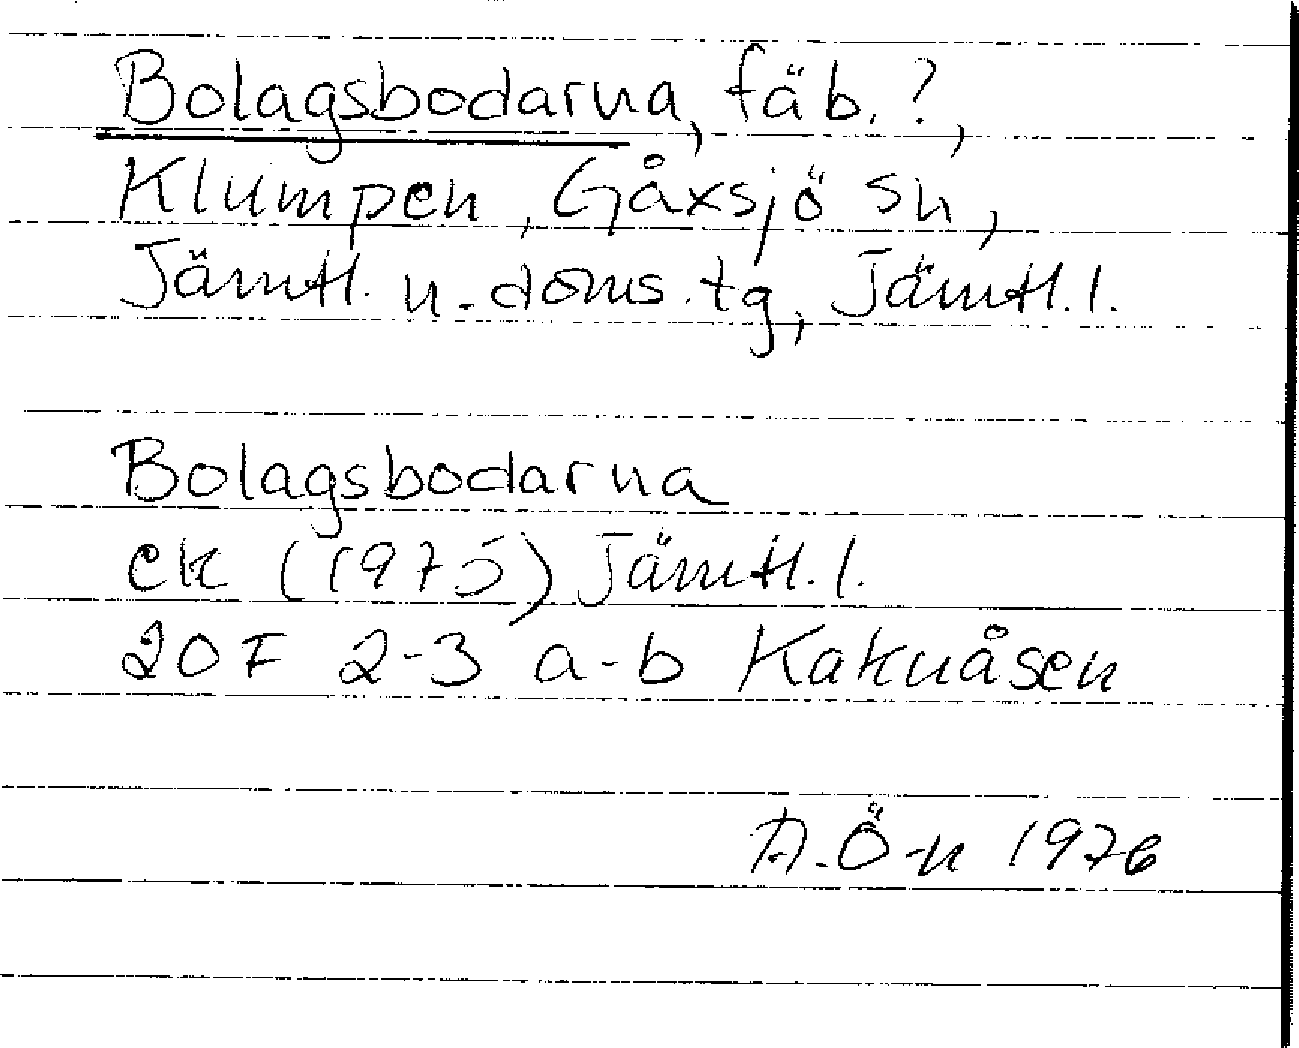 Bolagsbodarna, fäb. ?,
Klumpen, Gåxsjö sn,
Jämtl. n. doms. tg, Jämtl. l.
Bolagsbodarna
ek (1975) Jämtl. l.
20F 2-3 a-b Kakuåsen
A. Ö-n 1976